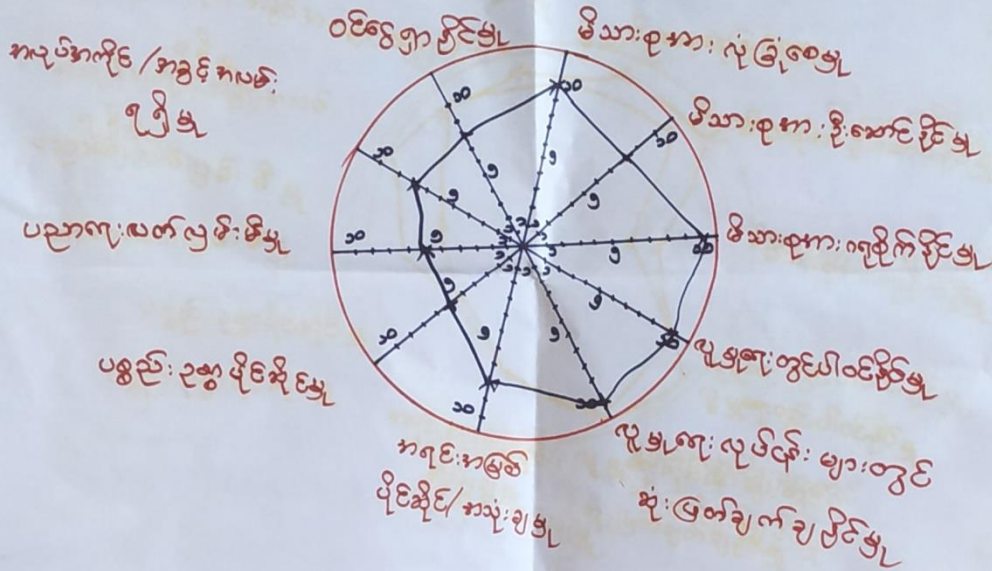 ဝင်ငွေရှာနိုင်မှု
မိသားစုအား လုံခြုံစေမှု
မိသားစုအား ဦးဆောင်နိုင်မှု
မိသားစုအား ဂရုစိုက်နိုင်မှု
လူမှုရေးတွင်ပါဝင်နိုင်မှု
လူမှုရေးလုပ်ငန်းများတွင်
ဆုံးဖြတ်ချက်ချနိုင်မှု
အရင်းအမြစ်
ပိုင်ဆိုင်/အသုံးချမှု
ပစ္စည်းဥစ္စာပိုင်ဆိုင်မှု
ပညာရေးထက်လှမ်းမီမှု
အလုပ်အကိုင်/အခွင့်အလမ်း
ရရှိမှု
၁၀
၁၀
၁၀
၁၀
၁၀
၁၀
၁၀
၁၀
၁၀
၁၀
၅
၅
၅
၅
၅
၅
၅
၅
၅
၅